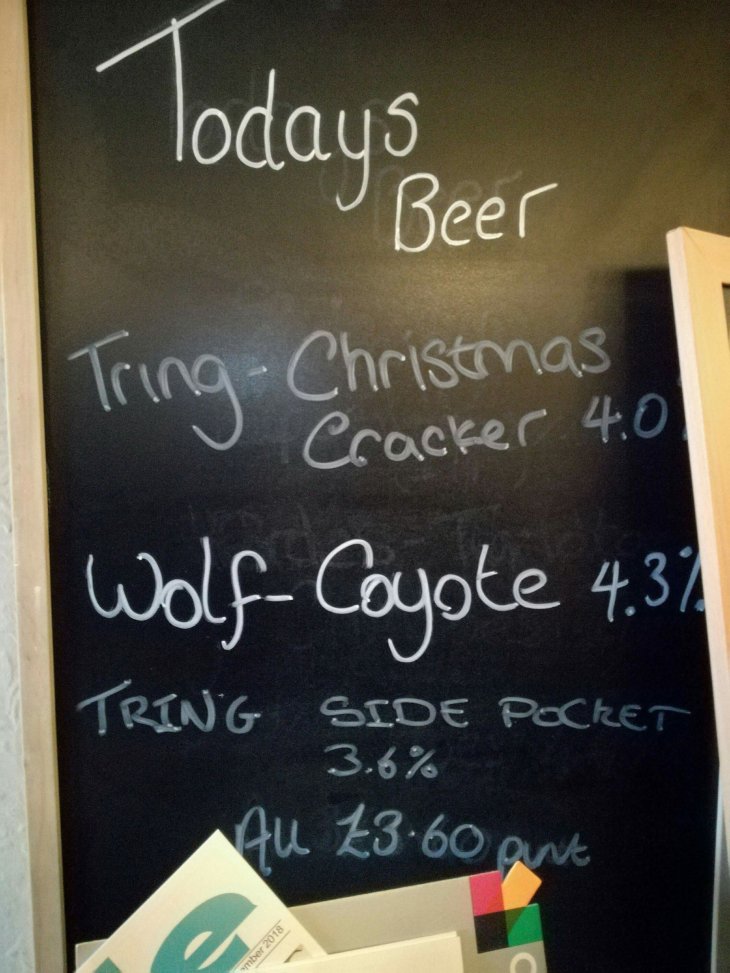 Todays
Beer
Tring - Christmas
Cracker 4.0%
Wolf - Coyote 4.3%
TRING SIDE POCKET
3.6%
All £3.60 pint
ember 2018